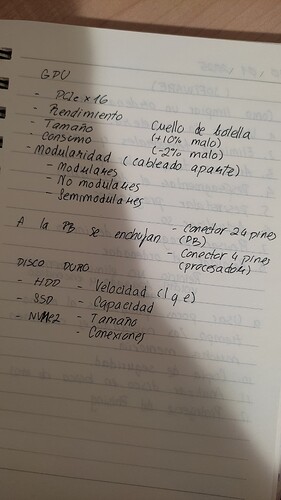 GPU
- PCIe x16
- Rendimiento
- Tamaño cuello de botella
- consumo (+10% malo)
- Modularidad (-2% malo) (cableado aparte)
- Modulares
- No modulares
- Semimodulares
A la PB se enchufan - conector 24 pines (PB)
- Conector 4 pines (procesador)
DISCO DURO
- HDD - Velocidad (l q e)
- SSD - Capacidad
- NVMe2 - Tamaño
- Conexiones